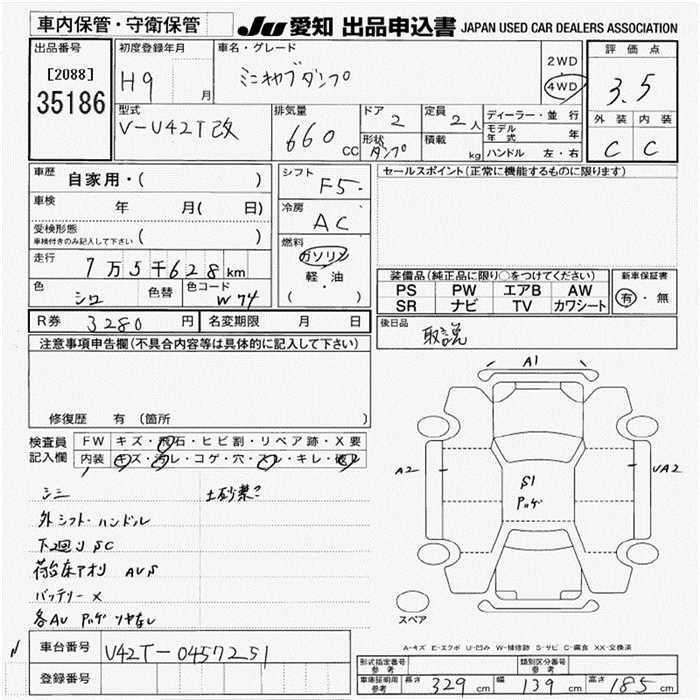 車内保管・守衛保管
JU 愛知 出品申込書 JAPAN USED CAR DEALERS ASSOCIATION
出品番号
[2088]
35186
初度登録年月
H9 月
車名・グレード
ミニキャブダンプ
2WD
4WD
評価点
3.5
外装 内装
C C
型式
V-U42T改
排気量
660 CC
ドア
2
定員
2人
形状
ダンプ
積載
kg
ディーラー・並行
モデル年式 年
ハンドル 左・右
車歴
自家用・( )
車検
年 月( 日)
受検形態
車検付きのみ記入して下さい ( )
走行
7万5千628km
色
シロ
色替
色コード
W74
シフト
F5
冷房
AC
燃料
ガソリン
軽・油
( )
セールスポイント(正常に機能するものに限ります)
装備品(純正品に限り○をつけてください)
PS PW エアB AW
SR ナビ TV カワシート
新車保証書
有・無
R券 3280 円 名変期限 月 日
後日品
取説
注意事項申告欄(不具合内容等は具体的に記入して下さい)
修復歴 有(箇所 )
検査員
記入欄
FW キズ・飛石・ヒビ割・リペア跡・X要
内装 キズ・汚レ・コゲ・穴・スレ・キレ・破レ
シミ 土砂禁?
外シフト・ハンドル
下回りSC
荷台床アオリ AUS
バッテリーX
各AU
A1
A2
S1
UA2
スペア
A-キズ E-エクボ U-凹み W-補修跡 S-サビ C-腐食 XX-交換済
車台番号
U42T-0457251
登録番号
型式指定番号
参考
類別区分番号
参考
車庫証明用
参考
長さ 329 cm 幅 139 cm 高さ 185 cm